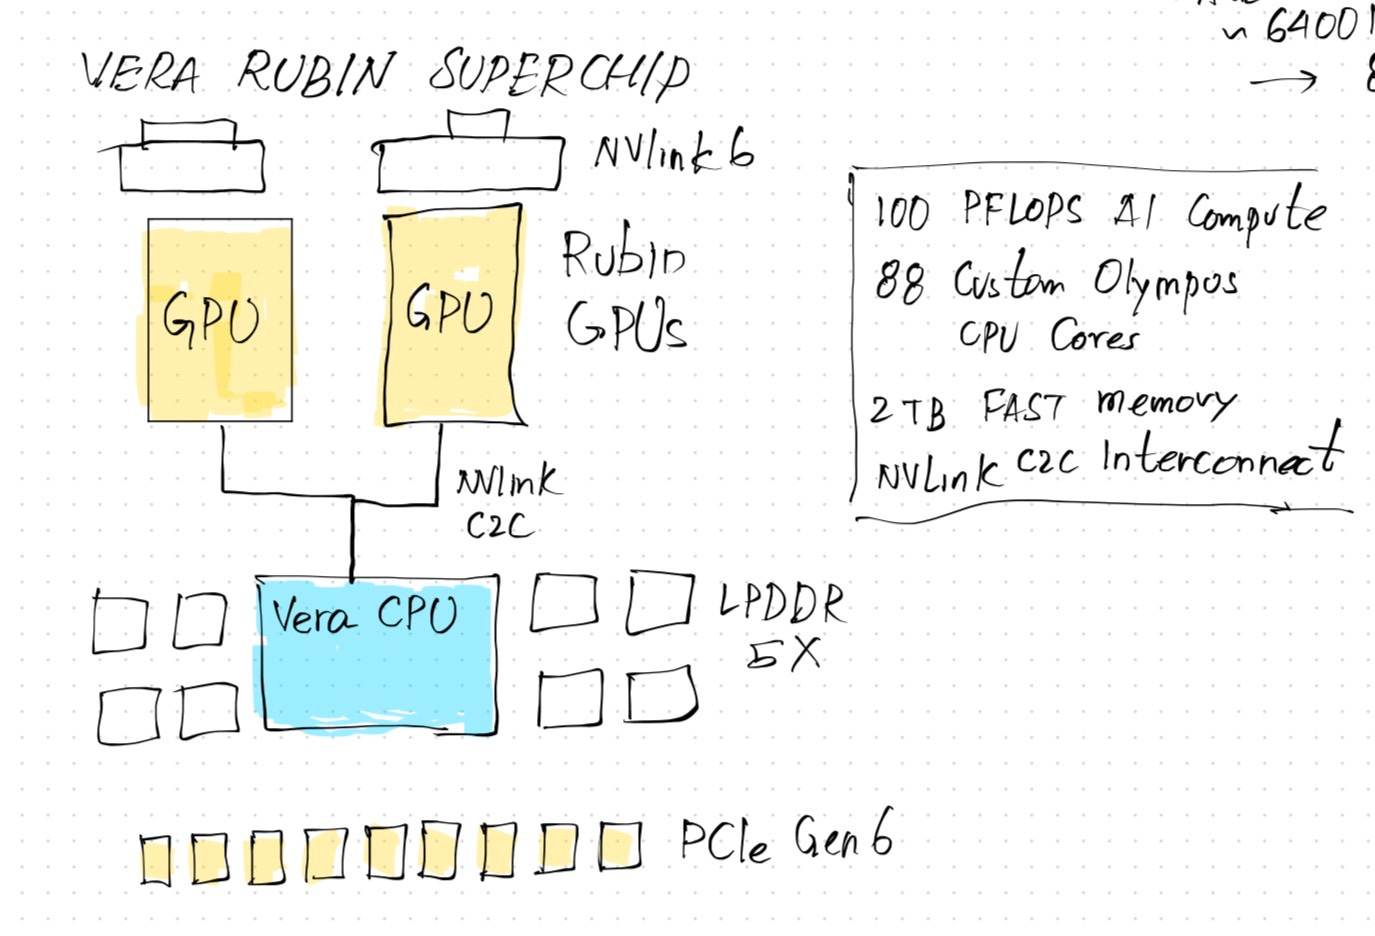 ~ 6400
→
VERA RUBIN SUPERCHIP
NVlink 6
GPU
GPU
Rubin
GPUs
NVlink
C2C
Vera CPU
LPDDR
5X
PCIe Gen 6
100 PFLOPS AI Compute
88 Custom Olympos
CPU Cores
2 TB FAST memory
NVLink C2C Interconnect